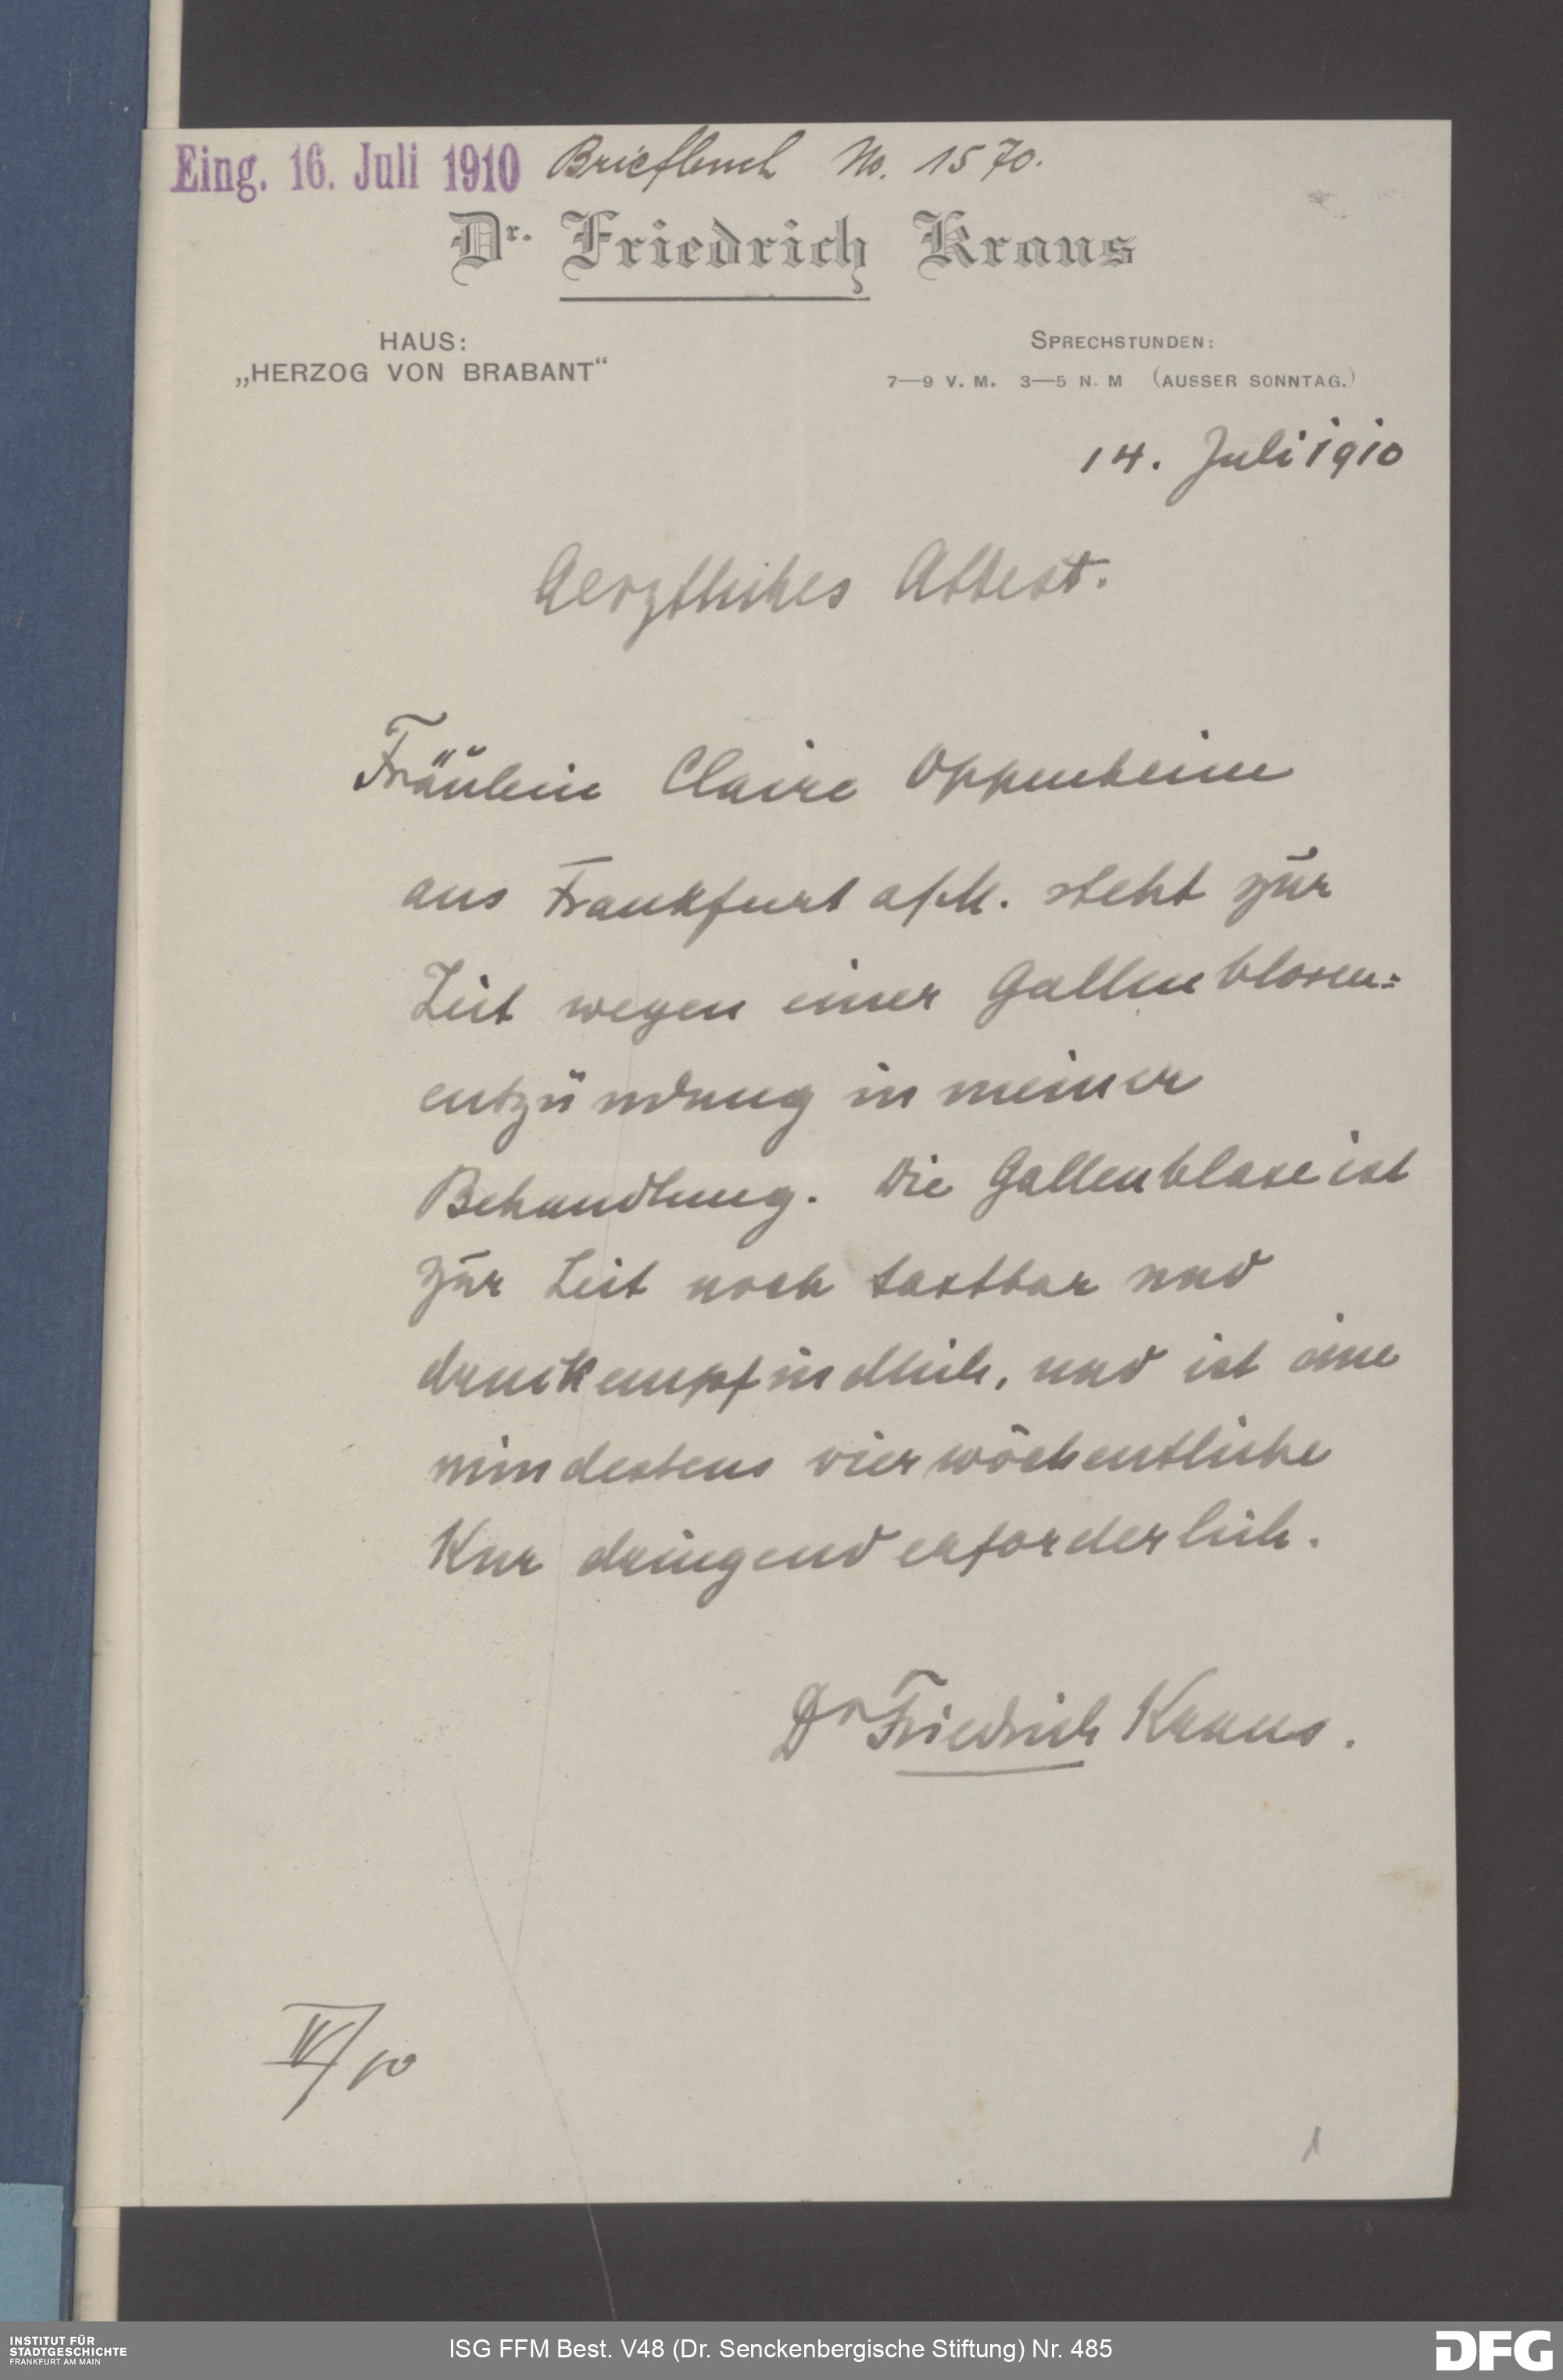 Eing. 16. Juli 1910 Briefbuch No. 1570.
Dr. Friedrich Kraus
HAUS:
„HERZOG VON BRABANT“
SPRECHSTUNDEN:
7—9 V. M. 3—5 N. M (AUSSER SONNTAG.)
14. Juli 1910
Aerztliches Attest.
Fräulein Claire Oppenheim
aus Frankfurt a/M. steht zur
Zeit wegen einer Gallenblasen=
entzündung in meiner
Behandlung. Die Gallenblase ist
zur Zeit noch tastbar und
druckempfindlich, und ist eine
mindestens vierwöchentliche
Kur dringend erforderlich.
Dr Friedrich Kraus.
IV/10
1
INSTITUT FÜR
STADTGESCHICHTE
FRANKFURT AM MAIN
ISG FFM Best. V48 (Dr. Senckenbergische Stiftung) Nr. 485
DFG